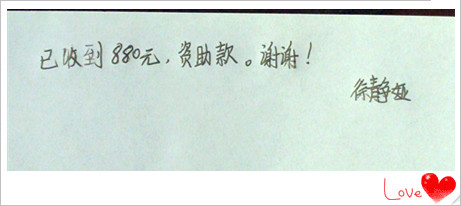 已收到880元，资助款。谢谢！
徐静娅
Love